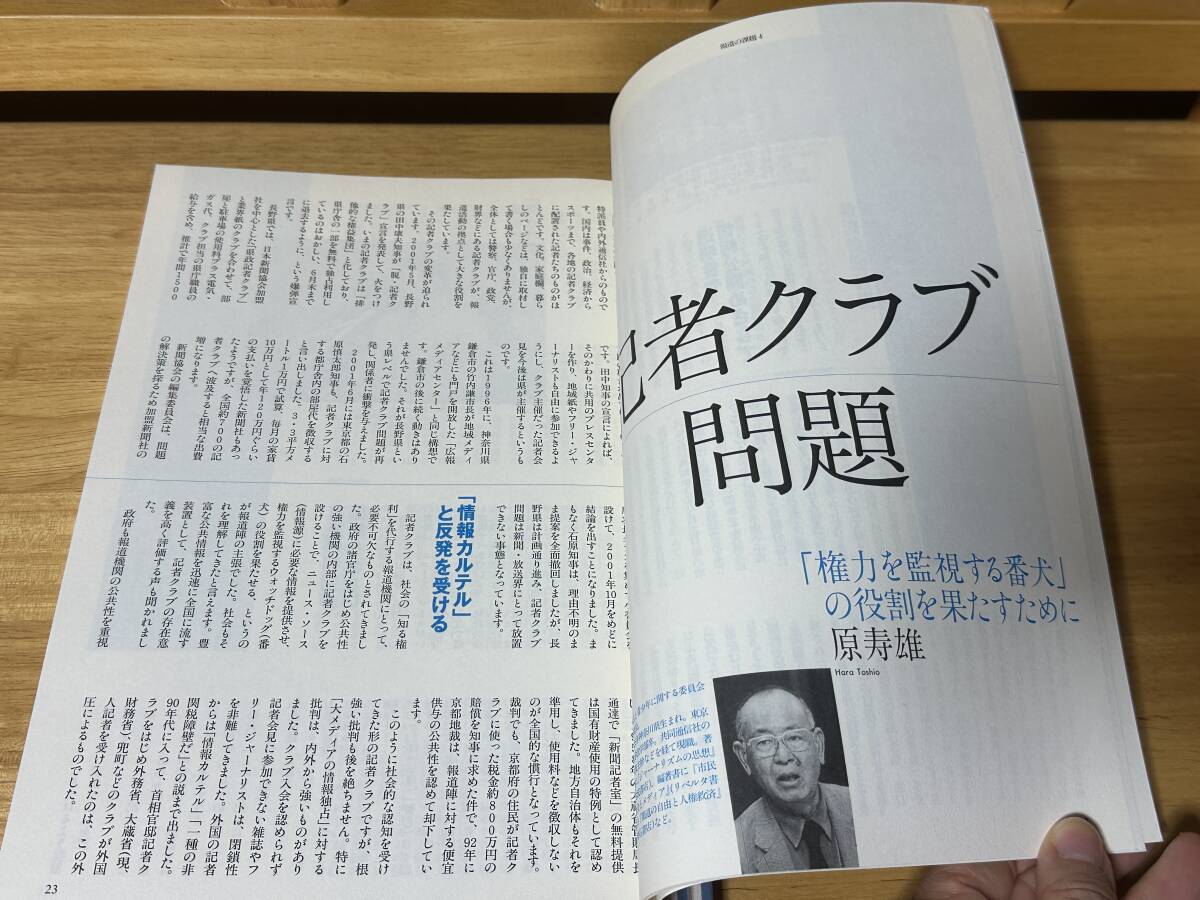 十勝紙の道報
者クラブ
問題
「権力を監視する番犬」
の役割を果たすために
原寿雄
Hara Toshio
特派員や内外通信社からのもので
す。国内は事件、政治、経済から
スポーツまで、各地の記者クラブ
に配置された記者たちのものがほ
とんどです。文化、家庭欄、暮ら
しのページなどは、独自に取材し
て書く場合も少なくありませんが、
全体としては警察、官庁、政党、
財界などにある記者クラブが、報
道活動の拠点として大きな役割を
果たしています。
その記者クラブの変革が迫られ
ています。2001年5月、長野
県の田中康夫知事が「脱・記者ク
ラブ」宣言を発表して、火をつけ
ました。いまの記者クラブは「排
他的な権益集団」と化しており、
県庁舎の一部を無料で独占利用し
ているのはおかしい、6月末まで
に退去するように、という爆弾宣
言です。
長野県では、日本新聞協会加盟
社を中心とした「県政記者クラブ」
と業界紙のクラブを合わせて、部
屋と駐車場の使用料プラス電気・
ガス代、クラブ担当の県庁職員の
給与を含め、推計で年間1500
です。田中知事の宣言によれば、
そのかわりに共用のプレスセンタ
ーを作り、地域紙やフリー・ジャ
ーナリストも自由に参加できるよ
うにし、クラブ主催だった記者会
見を今後は県が主催するというも
のです。
これは1996年に、神奈川県
鎌倉市の竹内謙市長が地域メディ
アなどにも門戸を開放した「広報
メディアセンター」と同じ構想で
す。鎌倉市の後に続く動きはあり
ませんでした。それが長野県とい
う県レベルで記者クラブ問題が再
発し、関係者に衝撃を与えました。
2001年6月には東京都の石
原慎太郎知事も、記者クラブに対
する都庁舎内の部屋代を徴収する
と言い出しました。3・3平方メ
ートル1万円で試算、毎月の家賃
10万円として年120万円ぐらい
の支払いを覚悟した新聞社もあっ
たようですが、全国約700の記
者クラブへ波及すると相当な出費
増になります。
新聞協会の編集委員会は、問題
の解決策を探るため加盟新聞社の
設けて、2001年10月をめどに
結論を出すことになりました。ま
もなく石原知事は、理由不明のま
ま提案を全面撤回しましたが、長
野県は計画通り進み、記者クラブ
問題は新聞・放送界にとって放置
できない事態となっています。
「情報カルテル」
と反発を受ける
記者クラブは、社会の「知る権
利」を代行する報道機関にとって、
必要不可欠なものとされてきまし
た。政府の諸官庁をはじめ公共性
の強い機関の内部に記者クラブを
設けることで、ニュース・ソース
（情報源）に必要な情報を提供させ、
権力を監視するウォッチドッグ（番
犬）の役割を果たせる、というの
が報道陣の主張でした。社会もそ
れを理解してきたと言えます。豊
富な公共情報を迅速に全国に流す
装置として、記者クラブの存在意
義を高く評価する声も聞かれまし
た。
政府も報道機関の公共性を重視
通達で「新聞記者室」の無料提供
は国有財産使用の特例として認め
てきました。地方自治体もそれを
準用し、使用料などを徴収しない
のが全国的な慣行となっています。
裁判でも、京都府の住民が記者ク
ラブに使った税金約800万円の
賠償を知事に求めた件で、92年に
京都地裁は、報道陣に対する便宜
供与の公共性を認めて却下してい
ます。
このように社会的な認知を受け
てきた形の記者クラブですが、根
強い批判も後を絶ちません。特に
「大メディアの情報独占」に対する
批判は、内外から強いものがあり
ました。クラブ入会を認められず
記者会見に参加できない雑誌やフ
リー・ジャーナリストは、閉鎖性
を非難してきました。外国の記者
からは「情報カルテル」「一種の非
関税障壁だ」との説まで出ました。
90年代に入って、首相官邸記者ク
ラブをはじめ外務省、大蔵省（現、
財務省）、兜町などのクラブが外国
人記者を受け入れたのは、この外
圧によるものでした。
23